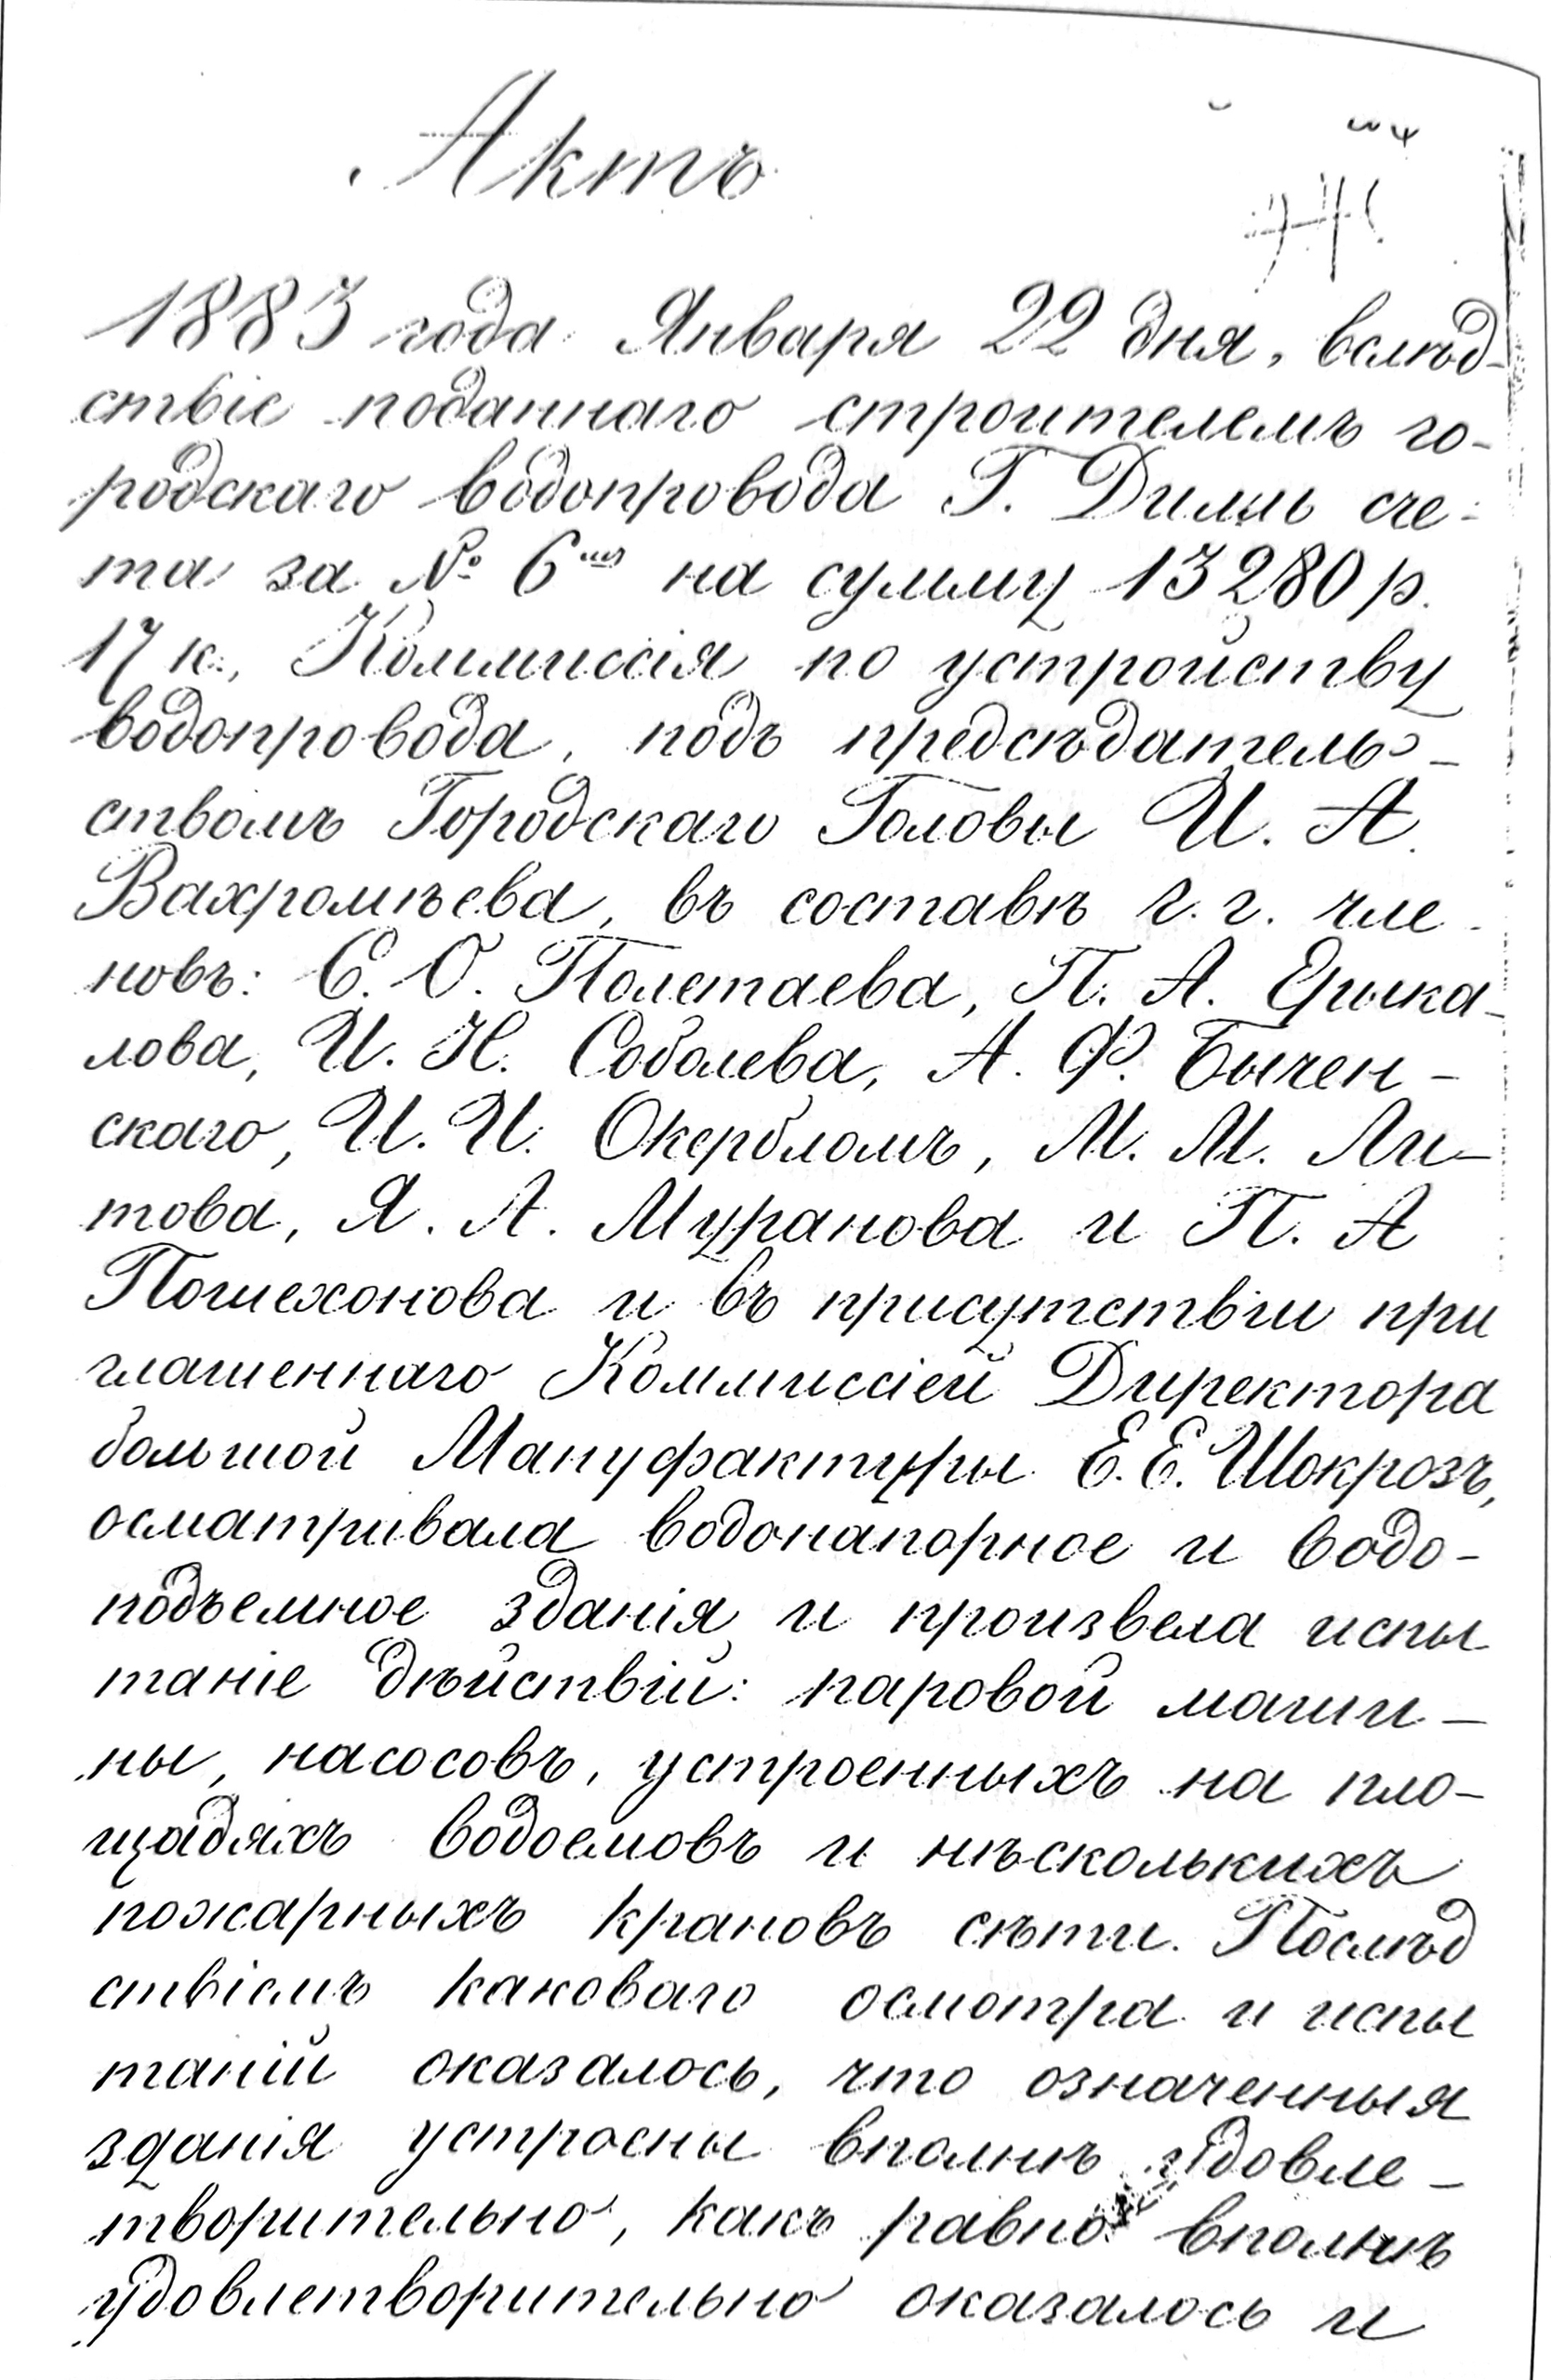 Актъ
1883 года Января 22 дня, вслѣд-
ствіе поданнаго строителемъ го-
родскаго водопровода Г. Дилль сче-
та за № 6ᵐъ на сумму 13280 р.
17 к., Коммиссія по устройству
водопровода, подъ предсѣдатель-
ствомъ Городскаго Головы И. А.
Вахромѣева, въ составѣ г. г. чле-
новъ: С. О. Полетаева, П. А. Ерыка-
лова, И. Н. Соболева, А. Ф. Бычен-
скаго, И. И. Окербломъ, М. М. Ли-
това, Я. А. Муранова и П. А
Пошехонова и въ присутствіи при
глашеннаго Коммиссіей Директора
большой Мануфактуры Е. Е. Шокрозъ,
осматривала водонапорное и водо-
подъемное зданія и произвела испы
таніе дѣйствій: паровой маши-
ны, насосовъ, устроенныхъ на пло-
щадяхъ водоемовъ и нѣсколькихъ
пожарныхъ крановъ сѣти. Послѣд
ствіемъ каковаго осмотра и испы
таній оказалось, что означенныя
зданія устроены вполнѣ удовле-
творительно, какъ равно вполнѣ
удовлетворительно оказалось и